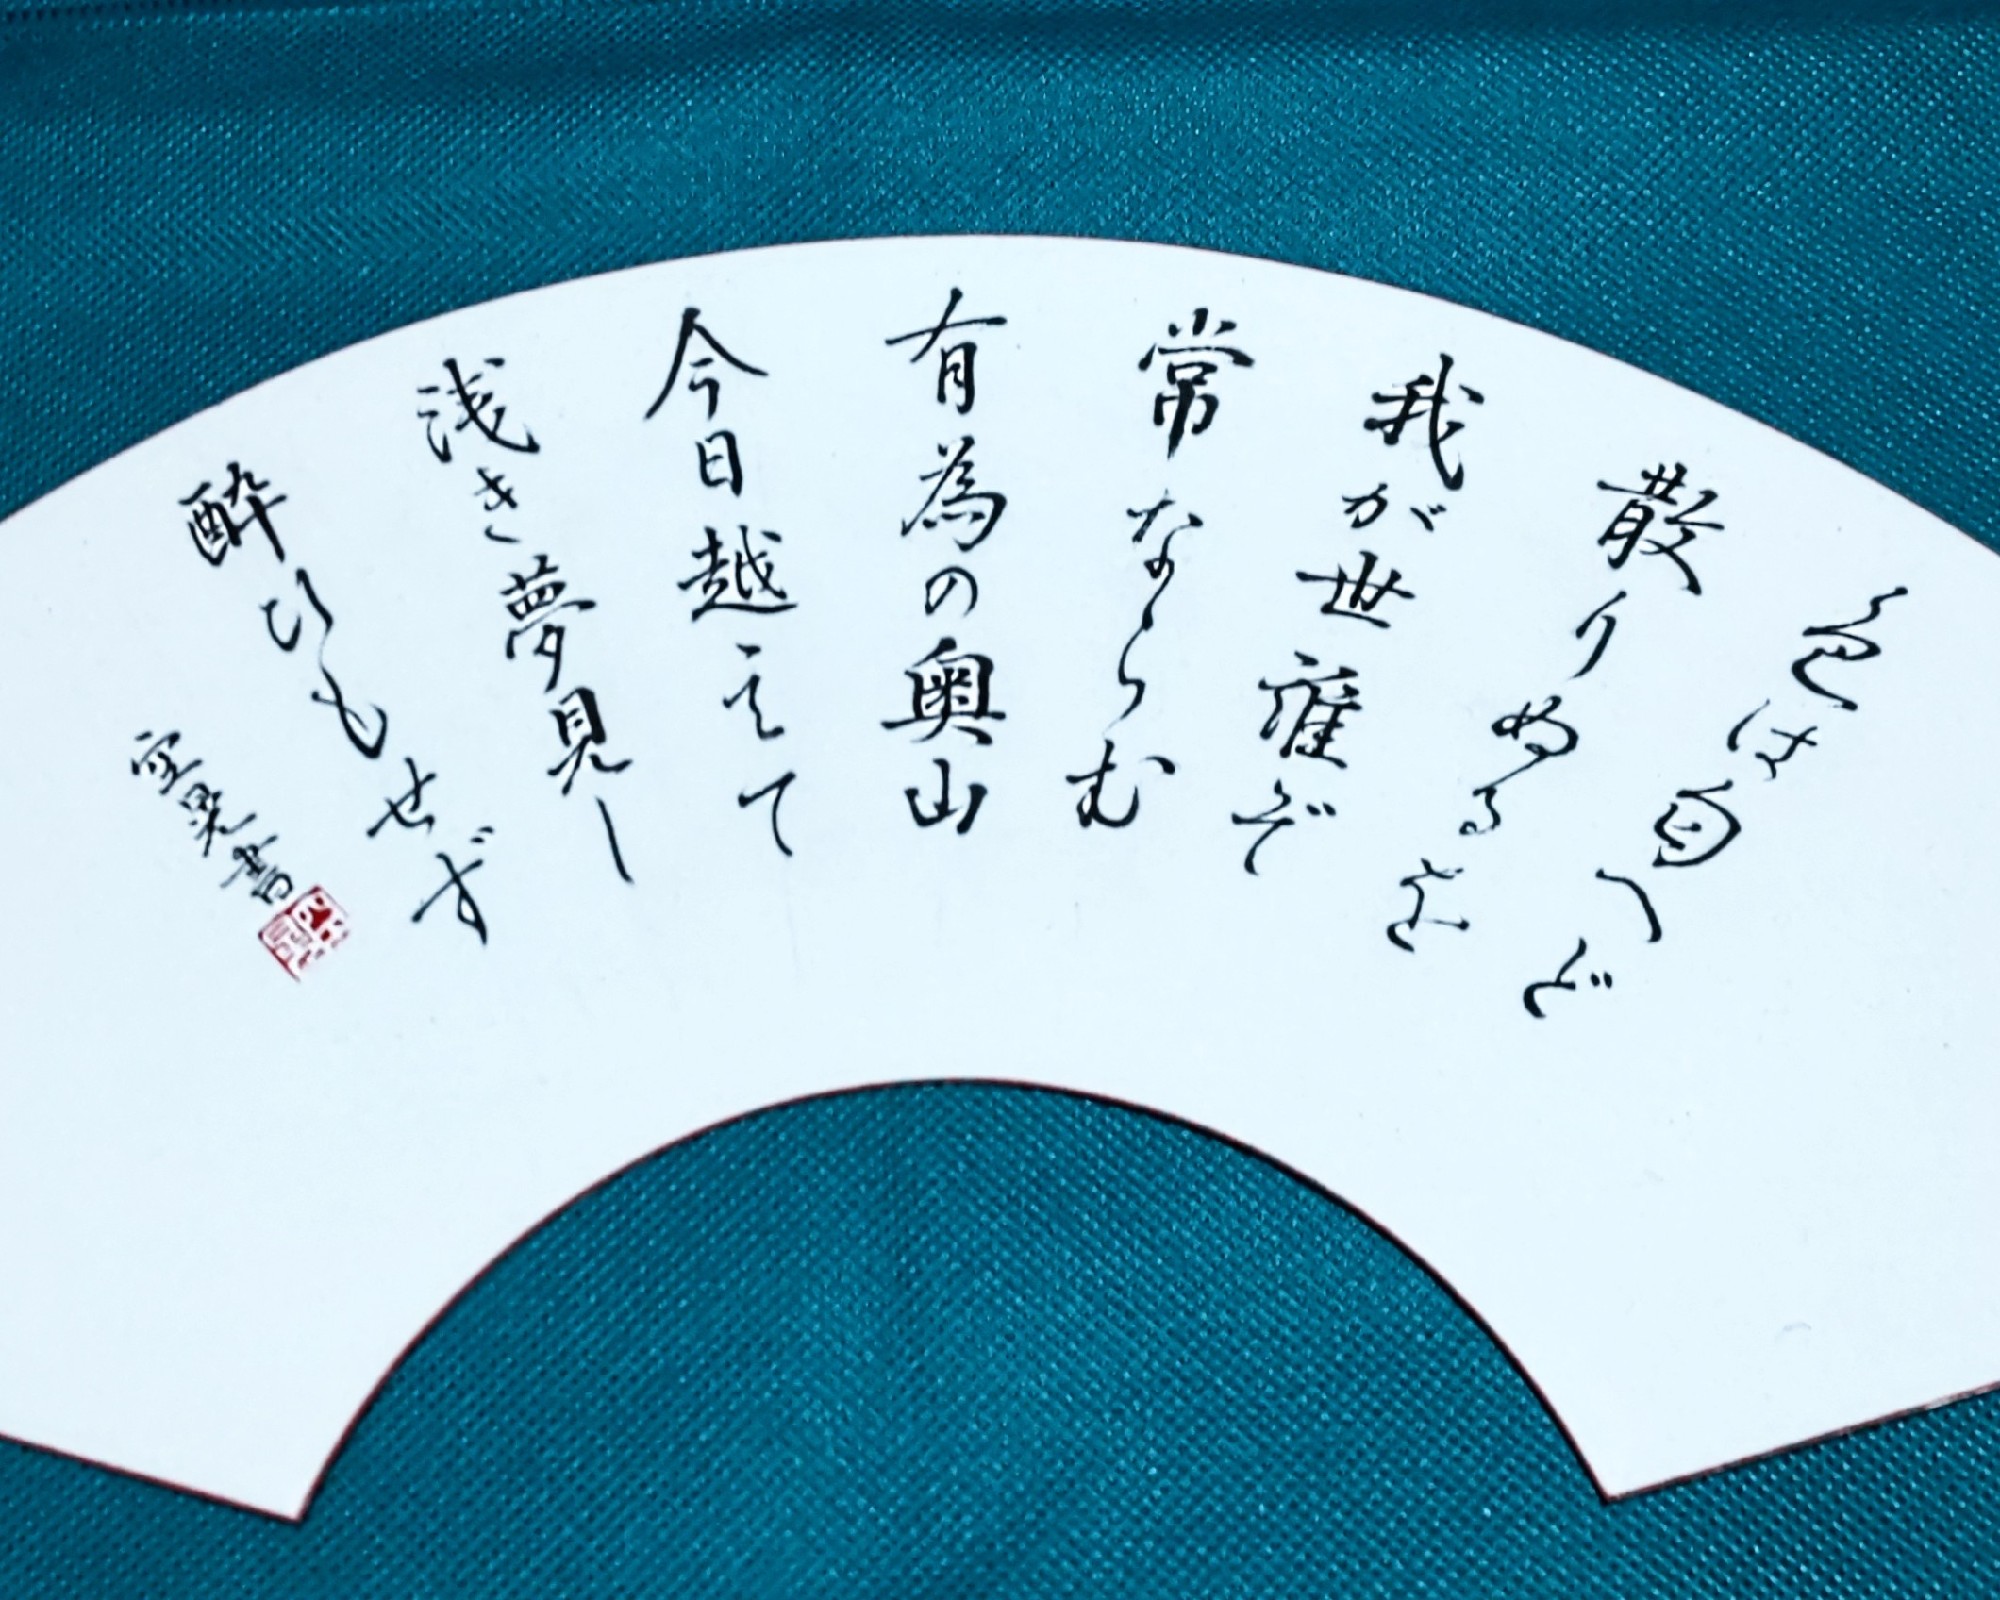 色は匂へど
散りぬるを
我が世誰ぞ
常ならむ
有為の奥山
今日越えて
浅き夢見し
酔ひもせず
空晃書